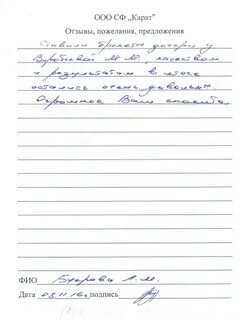 ООО СФ „Карат"
Отзывы, пожелания, предложения
Ставили брекеты дочери у
М.М., качеством
и результатом в итоге
остались очень довольны.
Огромное Вам спасибо.
ФИО Бухарова А.М.
Дата 03.11.16г. подпись